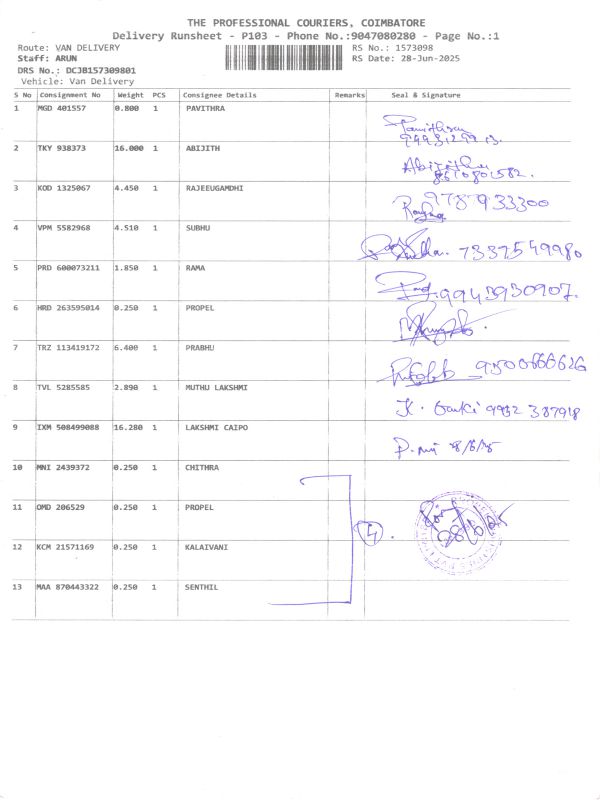 THE PROFESSIONAL COURIERS, COIMBATORE
Delivery Runsheet - P103 - Phone No.:9047080280 - Page No.:1
Route: VAN DELIVERY RS No.: 1573098
Staff: ARUN RS Date: 28-Jun-2025
DRS No.: DCJB157309801
Vehicle: Van Delivery
S No Consignment No Weight PCS Consignee Details Remarks Seal & Signature
1 MGD 401557 0.800 1 PAVITHRA
2 TKY 938373 16.000 1 ABIJITH
Abijitha
3 KOD 1325067 4.450 1 RAJEEUGAMDHI
9787933300
4 VPM 5582968 4.510 1 SUBHU
7337549980
5 PRD 600073211 1.850 1 RAMA
9943930907.
6 HRD 263595014 0.250 1 PROPEL
7 TRZ 113419172 6.400 1 PRABHU
9500666626
8 TVL 5285585 2.890 1 MUTHU LAKSHMI
K. 9952 387918
9 IXM 508499088 16.280 1 LAKSHMI CAIPO
28/6/25
10 MNI 2439372 0.250 1 CHITHRA
11 OMD 206529 0.250 1 PROPEL
28/6/25
12 KCM 21571169 0.250 1 KALAIVANI
13 MAA 870443322 0.250 1 SENTHIL